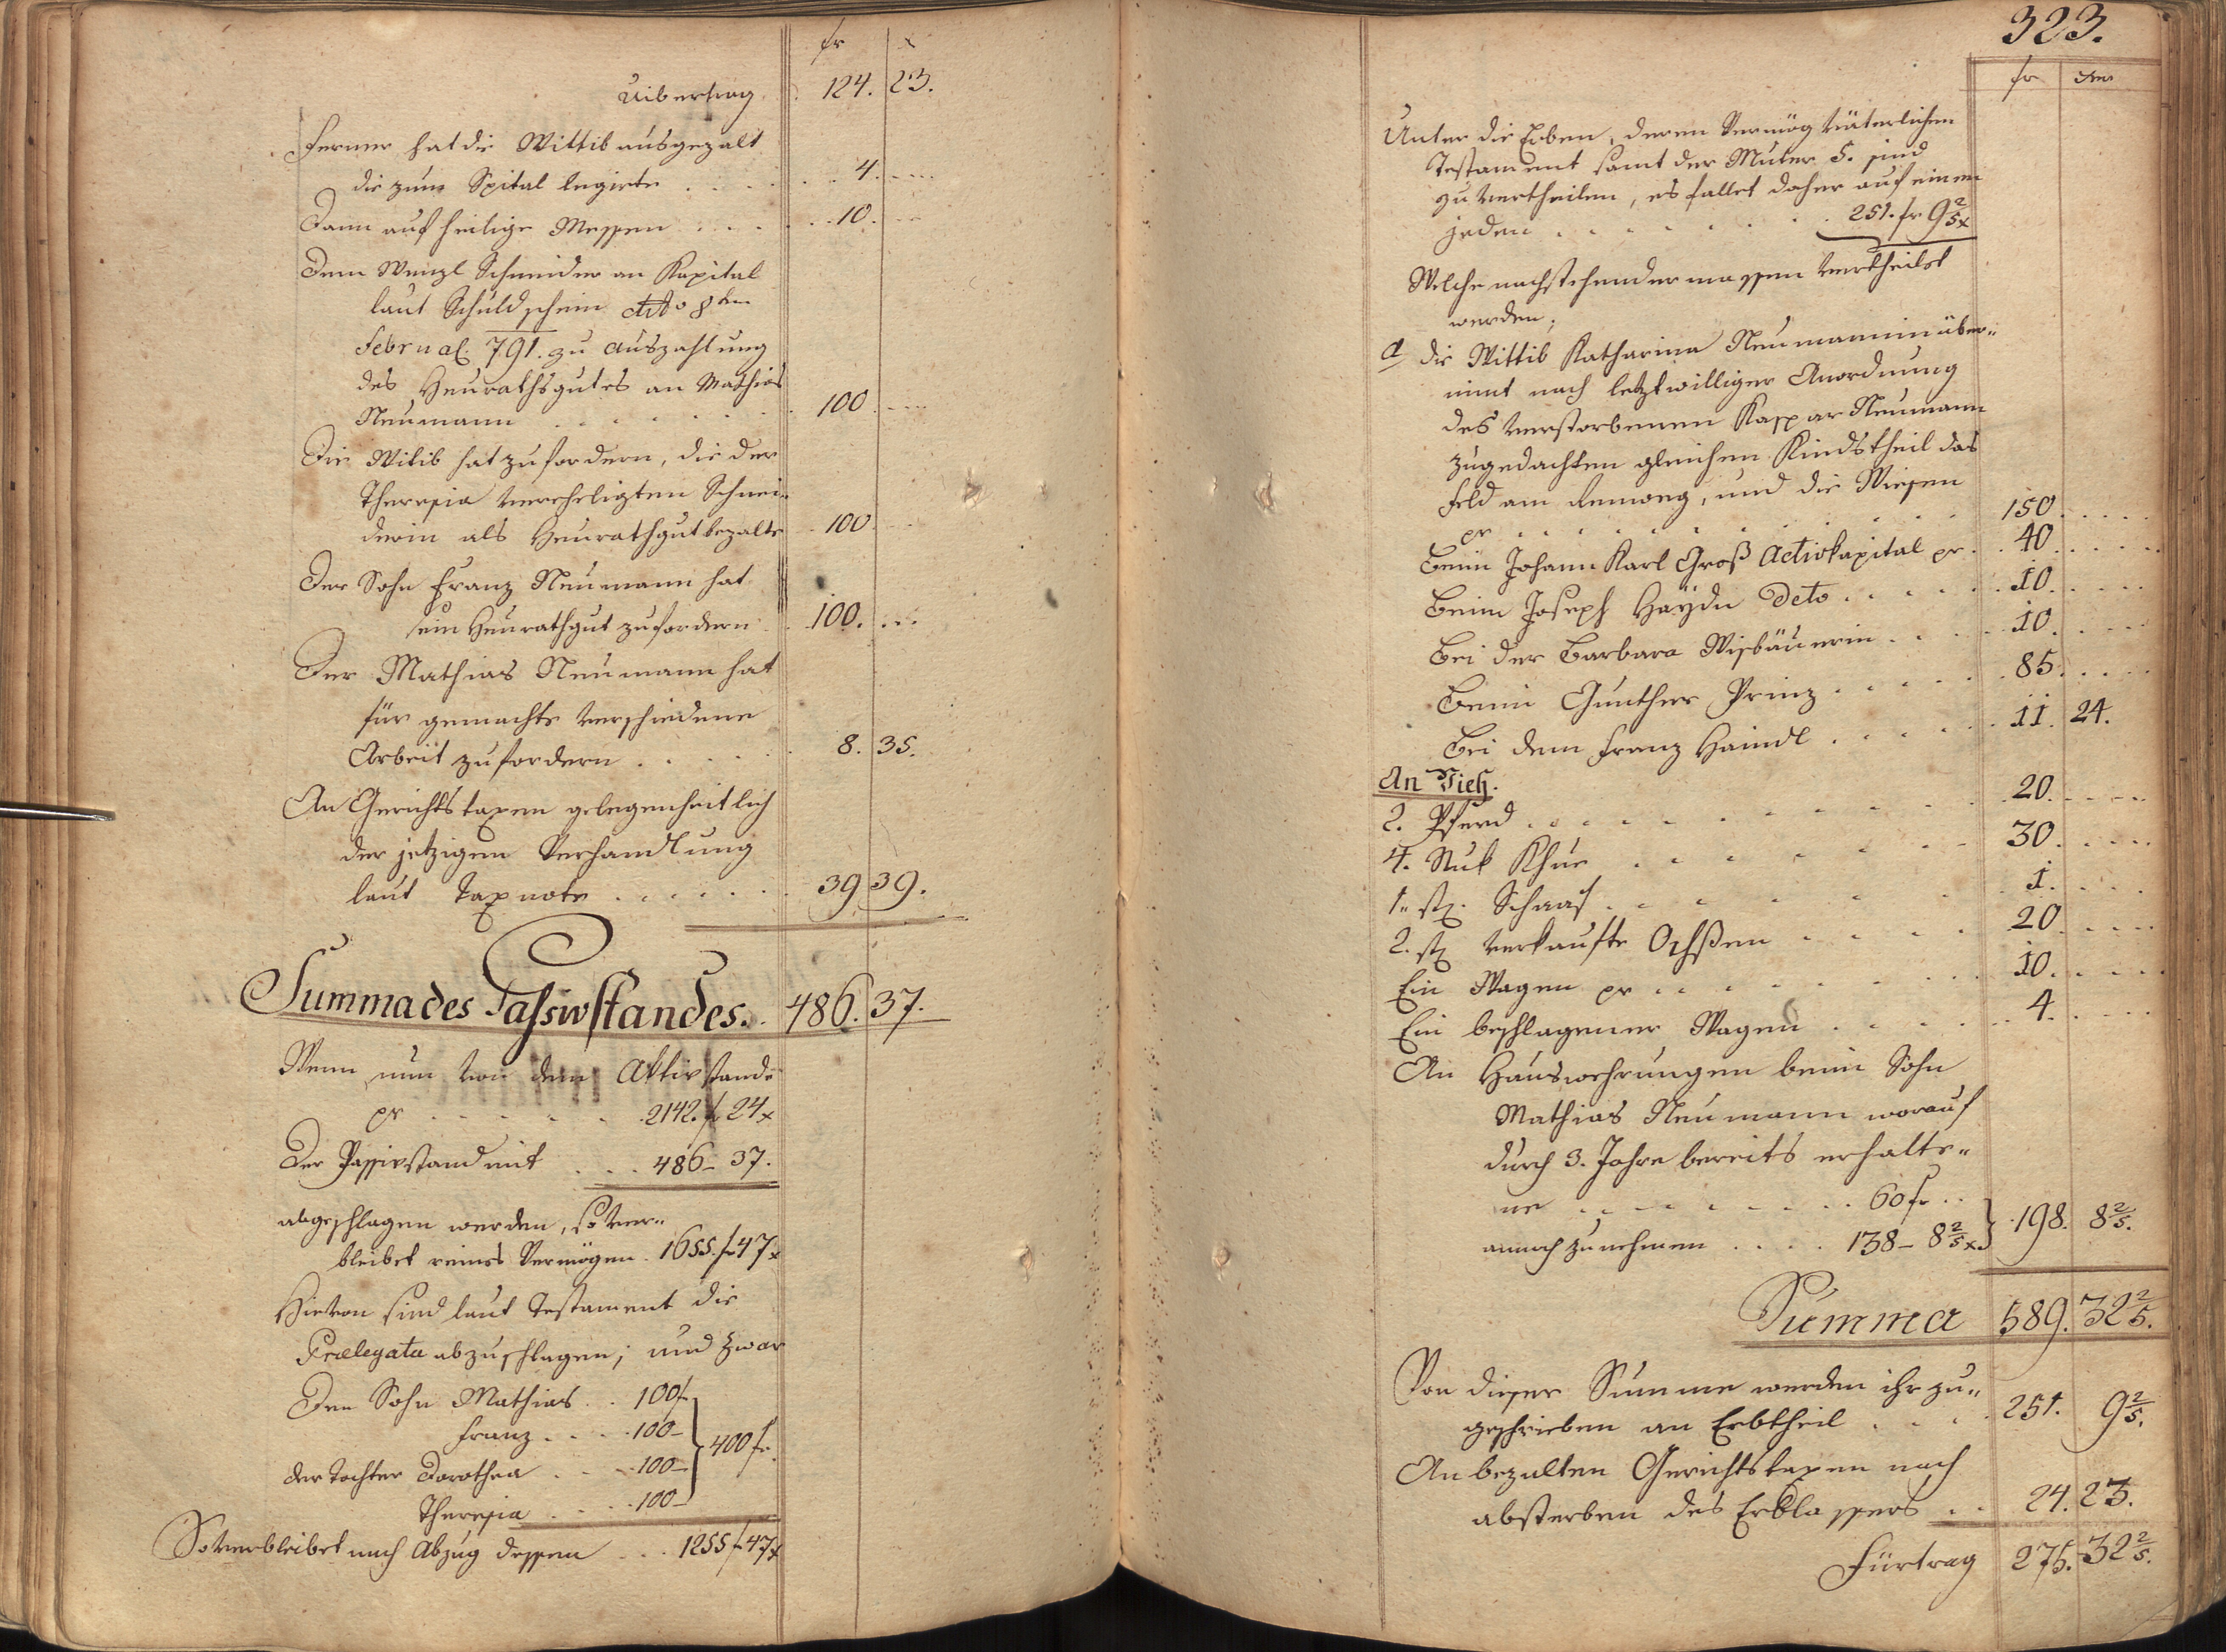 fr x
Uibertrag 124. 23.
Ferner hat die Wittib ausgezalt
die zum Spital legirte . . . 4. ...
Dann auf heilige Messen . . . 10. ...
Dem Wenzl Schneider an Kapital
laut Schuldschein ddto 8ten
Februar. 791. zu auszahlung
des Heurathsgutes an Mathias
Neumann . . . . . 100. ...
Die Witib hat zufordern, die der
Theresia vereheligten Schnei„
derin als Heurathgut bezalte 100. ...
Der Sohn Franz Neumann hat
sein Heurathgut zufordern 100. ...
Der Mathias Neumann hat
für gemachte verschiedene
Arbeit zufordern . . . . 8. 35.
An Gerichtstaxen gelegenheitlich
der jetzigen Verhandlung
laut Taxnote . . . . . 39 39.
Summa des Passivstandes. 486. 37.
Wenn nun von dem Aktivstande
pr . . . . . 2142. f 24x
Der Passivstand mit . . . 486– 37.
abgeschlagen werden, so ver„
bleibet reines Vermögen . 1655. f 47x
Hievon sind laut Testament die
Prælegata abzuschlagen; und zwar
Den Sohn Mathias . . 100f
Franz . . . . 100–
der Tochter Dorothea . . . 100– } 400 fr.
Theresia . . . . 100–
So verbleibet nach Abzug dessen . . . 1255 f 47x
323.
fr xer
Unter die Erben, deren Vermög väterlichen
Testament samt der Muter 5. sind
zu vertheilen, es fallet daher auf einen
jeden . . . . . . . 251. fr 9 2/5 x
Welche nachstehendermassen vertheilet
werden;
a die Wittib Katharina Neumannin über„
nimt nach letztwilliger Anordnung
des verstorbenen Kaspar Neumann
zugedachten gleichen Kindstheil das
Feld am , und die Wiesen
pr . . . . . . . . . 150. ...
Beim Johann Karl Groß Activkapital pr . . 40. ...
Beim Joseph Haydn Deto . . . . . 10. ...
Bei der Barbara Wisbäuerin . . . . 10. ...
Beim Gunther Prinz . . . . . 85. ...
Bei dem Franz Haindl . . . . . 11. 24.
An Vieh.
2. Pferd . . . . . . . . . 20. ...
4. Stuk Khue . . . . . . . 30. ...
1. st. Schaaf . . . . . . . 1. ...
2. st verkaufte Ochßen . . . . 20. ...
Ein Wagen pr . . . . . . 10. ...
Ein beschlagener Wagen . . . . . 4. ...
An Hauswehrungen beim Sohn
Mathias Neumann worauf
durch 3. Jahre bereits erhalte„
ne . . . . . . . . 60 fr . .
annoch zunehmen . . . . 138– 8 2/5 x } 198. 8 2/5.
Summa 589. 32 2/5.
Von dieser Summe werden ihr zu„
geschrieben an Erbtheil . . . . 251. 9 2/5.
An bezalten Gerichtstaxen nach
absterben des Erblassers . . 24. 23.
Fürtrag 275. 32 2/5.